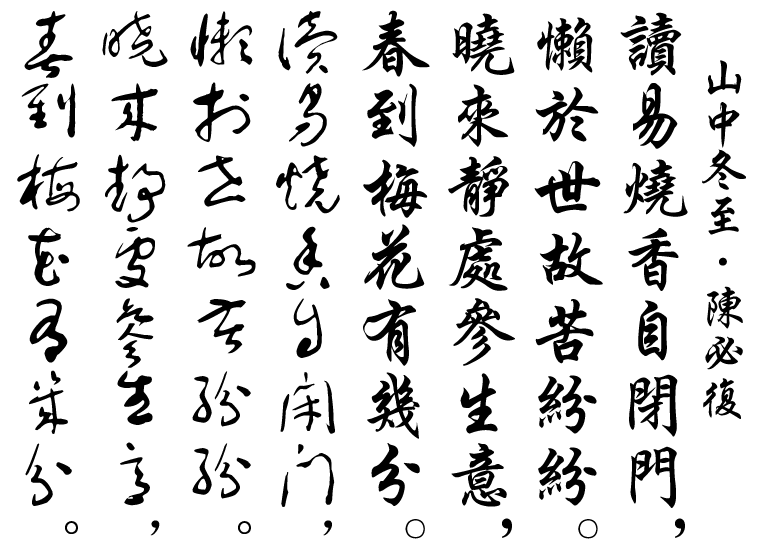 山中冬至・陳必復
讀易燒香自閉門，
懶於世故苦紛紛。
曉來靜處參生意，
春到梅花有幾分。
讀易燒香自閉門，
懶於世故苦紛紛。
曉來靜處參生意，
春到梅花有幾分。